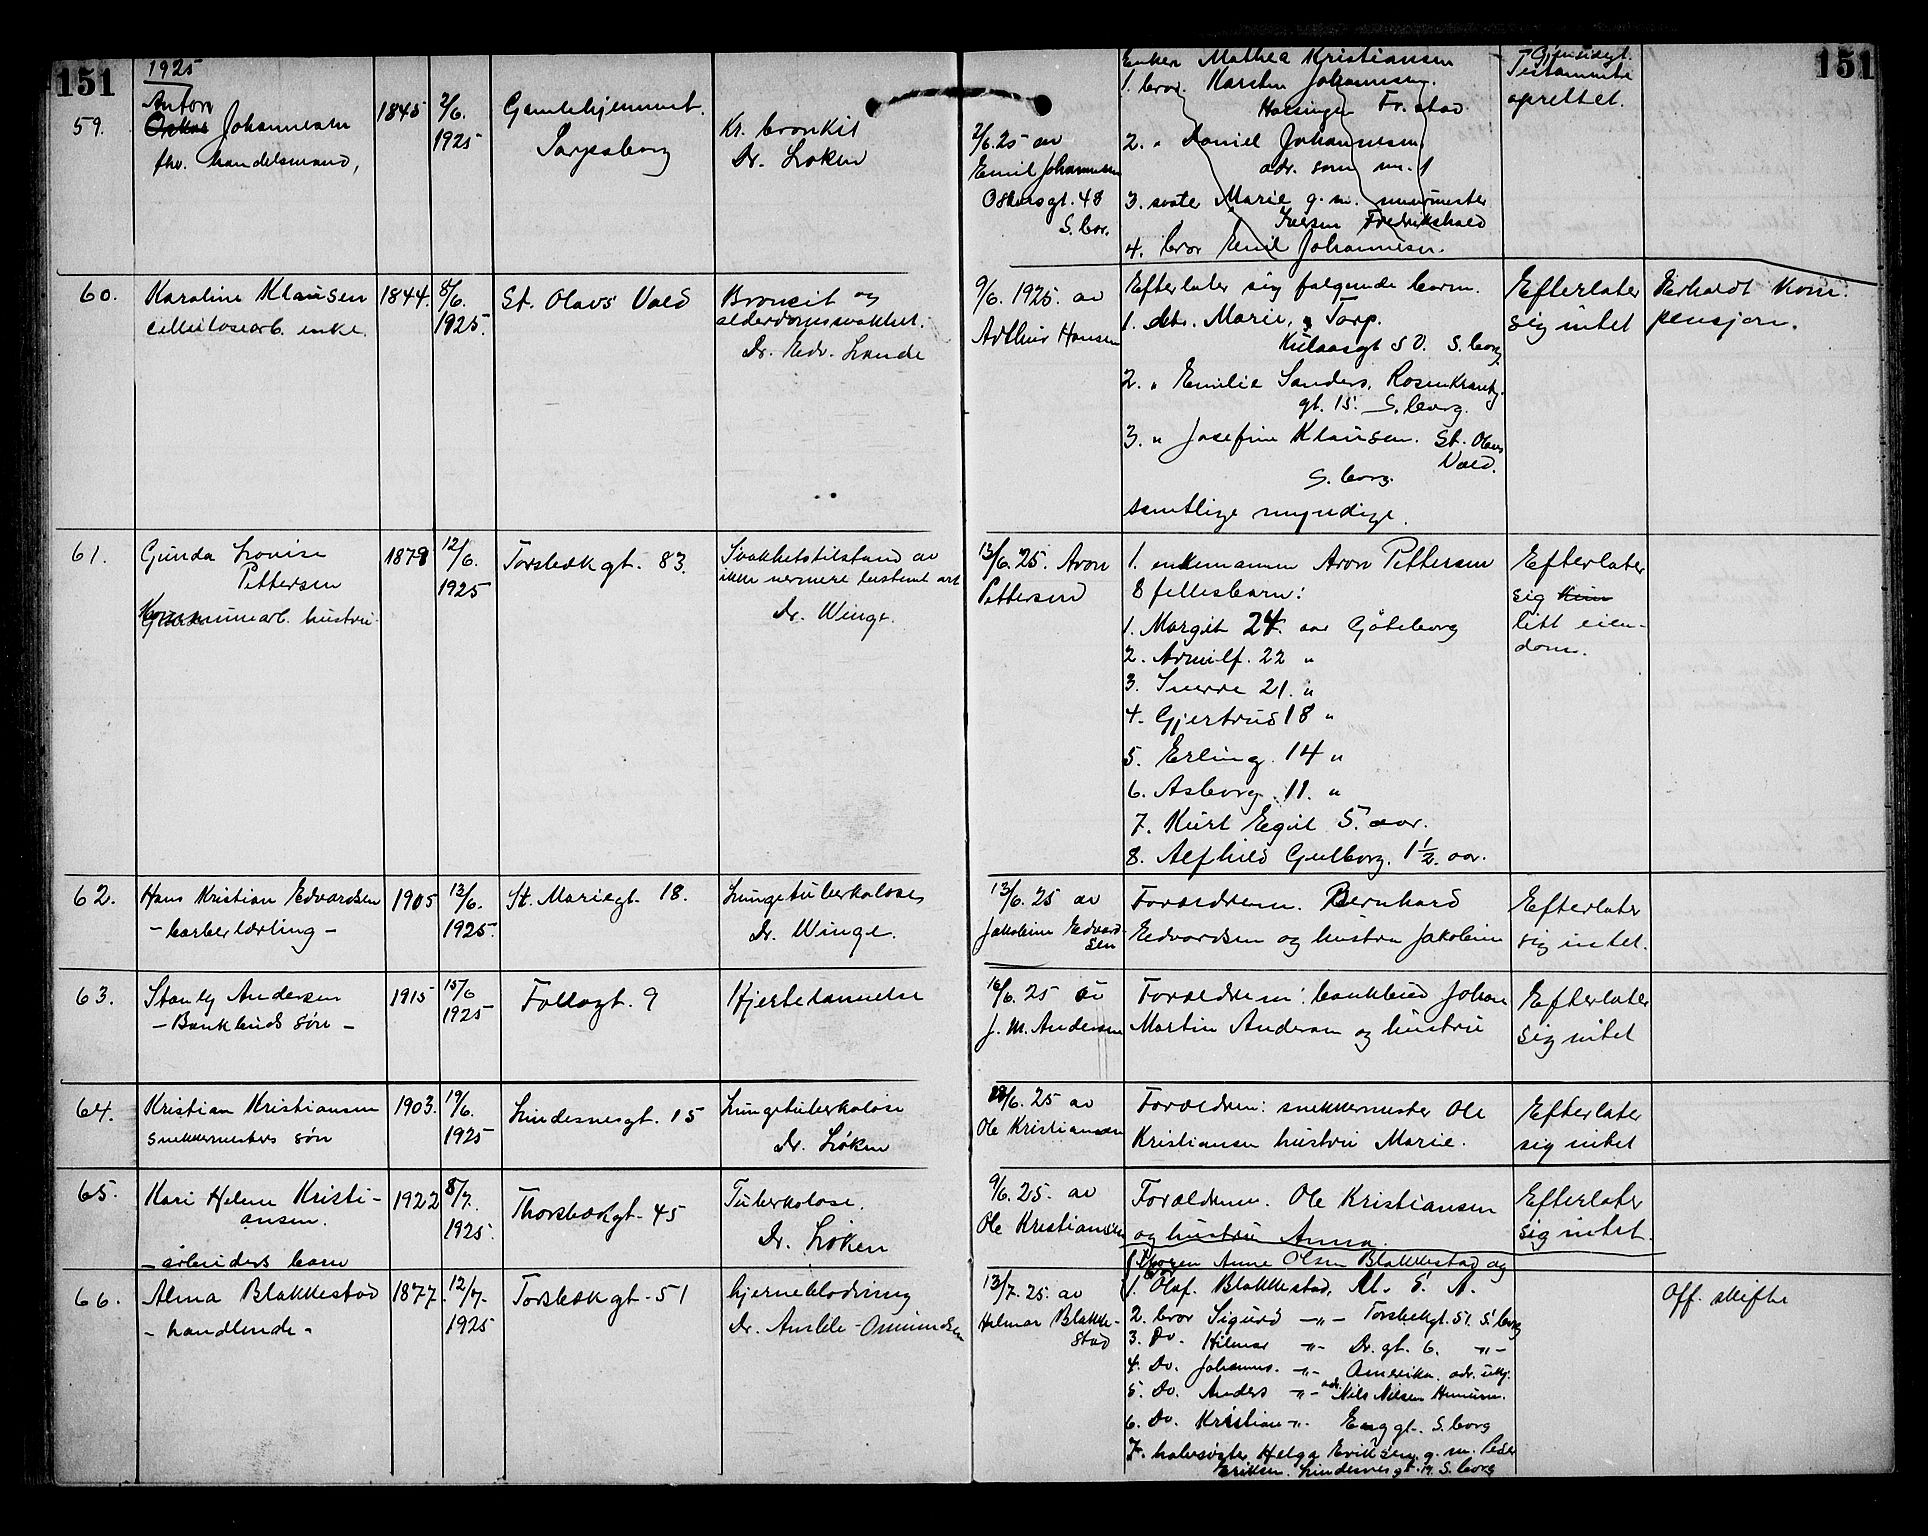 151
151
1925
59.
Anton
Oskar Johannesen
fhv. handelsmand,
1845
2/6.
1925
Gamlehjemmet.
Sarpsborg
Kr. bronkit
Dr. Løken
2/6.25 av
Emil Johannesen
Oskarsgt. 48
S.bor.
Enken Mathea Kristiansen
1. bror. Karsten Johannesen.
Fr.stad.
2. " Daniel Johannesen.
adr. som nr. 1
3. søster Marie g. m. murmester
Iversen Fredrikshald
4. bror Emil Johannesen.
Gjensidigt.
Testamente
oprettet.
60.
Karoline Klausen
cellulosearb. enke.
1844.
8/6.
1925.
St. Olavs Vold
Bronkit og
alderdomssvakhet.
Dr. Edv. Lande
9/6. 1925. av
Arthur Hansen
Efterlater sig følgende barn.
1. dtr. Marie, Torp.
Kulaasgt 50. S.borg
2. " Emilie Sanders, Rosenkrantz-
gt. 15. S.borg.
3. " Josefine Klausen. St. Olavs
Vold.
S.borg.
samtlige myndige.
Efterlater
sig intet
Erholdt kom.
pensjon.
61.
Gunda Lovise
Pettersen
Kommunearb. hustru.
1879
12/6.
1925
Torsbækgt. 83.
Svakhetstilstand av
ikke nermere bestemt art
Dr. Winge.
13/6.25. Aron
Pettersen
1. enkemannen Aron Pettersen
8 fellesbarn:
1. Margit 24. aar Göteborg
2. Arnulf. 22 "
3. Sverre 21. "
4. Gjertrud 18 "
5. Erling. 14 "
6. Asborg. 11. "
7. Kurt Egil 5. aar.
8. Alfhild Gulborg. 1½. aar.
Efterlater
sig kun
litt eien-
dom.
62.
Hans Kristian Edvardsen
- barberlærling -
1905
13/6.
1925.
St. Mariegt. 18.
Lungetuberkolose
Dr. Winge.
13/6.25 av
Jakobine Edvard-
sen
Forældrene. Bernhard
Edvardsen og hustru Jakobine
Efterlater
sig intet.
63.
Stanly Andersen
- Bankbuds søn -
1915
15/6
1925
Follogt. 9
Hjertelammelse
16/6.25 av
J. M. Andersen
Forældrene: bankbud Johan
Martin Andersen og hustru
Efterlater
sig intet
64.
Kristian Kristiansen
snekkermesters søn
1903.
19/6.
1925
Lindesnesgt. 15
Lungetuberkolose
Dr. Løken
20/6.25 av
Ole Kristiansen
Forældrene: snekkermester Ole
Kristiansen hustru Marie.
Efterlater
sig intet
65.
Kari Helene Kristi-
ansen.
- arbeiders barn
1922
8/7.
1925.
Thorsbækgt. 45
Tuberkolose.
Dr. Løken
9/6.25. av
Ole Kristiansen
Forældrene. Ole Kristiansen
og hustru Anna.
Efterlater
sig intet.
66.
Alma Blakkestad
- handlende -
1877
12/7.
1925
Torsbækgt. 51
hjerneblødning
Dr. Osmundsen
13/7.25. av
Helmar Blakke-
stad
Moren Anne Olsen Blakkestad og
1. Olaf. Blakkestad, U. S. A.
2. bror Sigurd -"- Torsbekgt. 51. S.borg
3. Do. Hilmar -"- Dr. gt. 6. -"-
4. Do. Johannes. -"- Amerika. adr. ubkj.
5. Do. Anders -"- adr. Nils Nilsen
6. Do. Kristian -"- Enggt. S.borg
7. halvsøster Helga Eriksen, g. m. Peder
Eriksen. Lindesnesgt. S.borg
Off. skifte